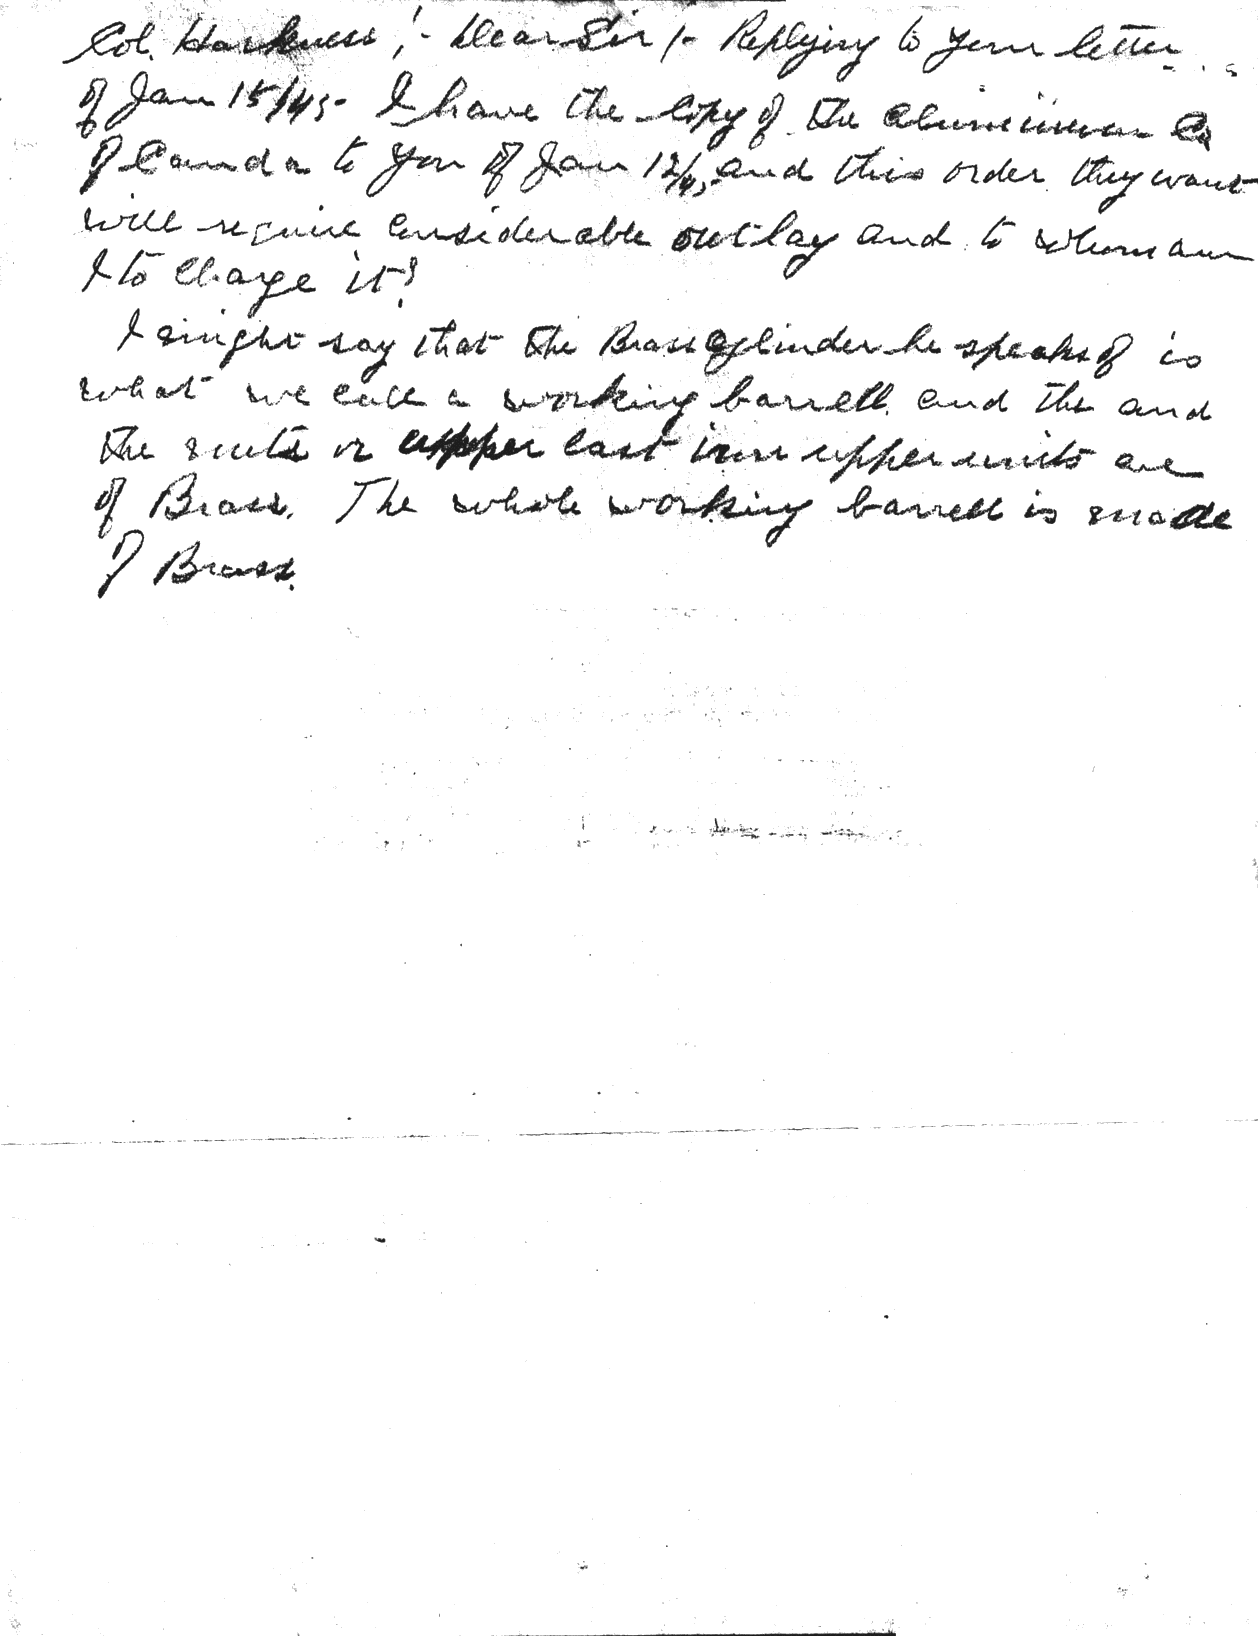 Col. Harkness ;- Dear Sir /- Replying to your letter
of Jan 15/45- I have the copy of the Aluminiumn Co
of Canda to you of Jan 12/45, and this order they want
will require considerable outlay and to whom am
I to charge it?
I might say that the Brass cylinder he speaks of is
what we call a working barrell and the and
the or upper cast iron upper units are
of Brass. The whole working barrell is made
of Brass.